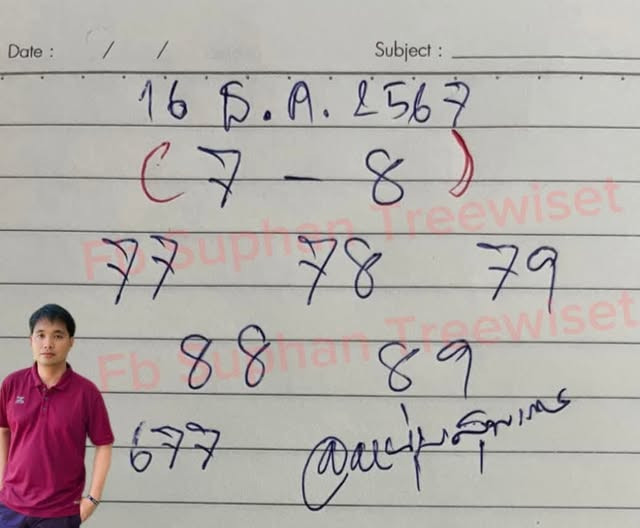 Date : / / Subject :
16 ธ.ค. 2567
( 7 - 8 )
77 78 79
Fb Suphan Treewiset
88 89
Fb Suphan Treewiset
677